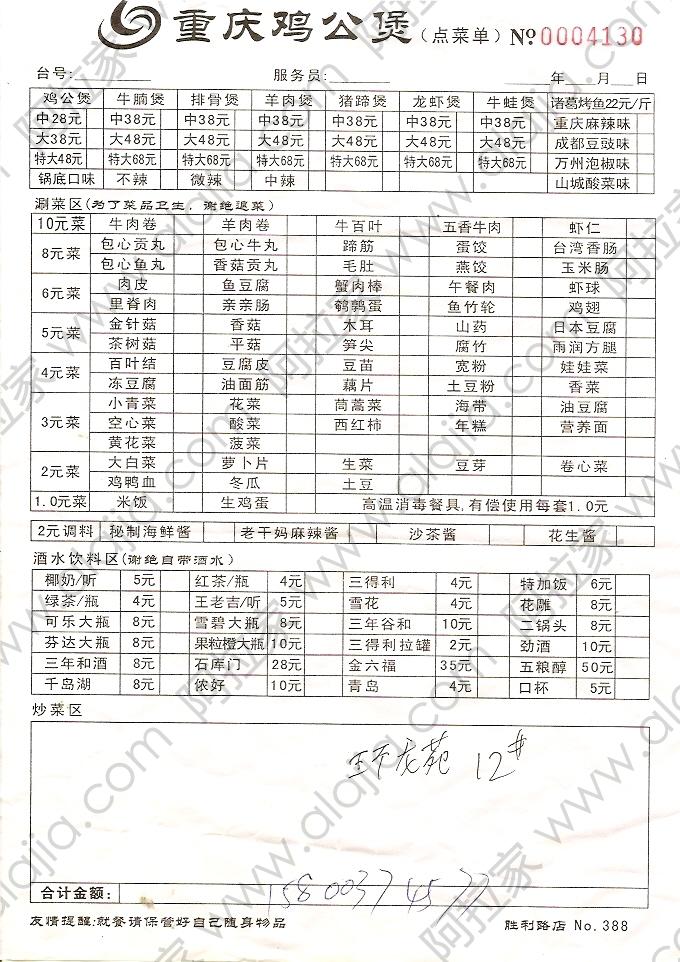 重庆鸡公煲(点菜单) №0004130
台号: 服务员: 年 月 日
鸡公煲 牛腩煲 排骨煲 羊肉煲 猪蹄煲 龙虾煲 牛蛙煲 诸葛烤鱼22元/斤
中28元 中38元 中38元 中38元 中38元 中38元 中38元 重庆麻辣味
大38元 大48元 大48元 大48元 大48元 大48元 大48元 成都豆豉味
特大48元 特大68元 特大68元 特大68元 特大68元 特大68元 特大68元 万州泡椒味
锅底口味 不辣 微辣 中辣 山城酸菜味
涮菜区(为了菜品卫生,谢绝退菜)
10元菜 牛肉卷 羊肉卷 牛百叶 五香牛肉 虾仁
8元菜 包心贡丸 包心牛丸 蹄筋 蛋饺 台湾香肠
包心鱼丸 香菇贡丸 毛肚 燕饺 玉米肠
6元菜 肉皮 鱼豆腐 蟹肉棒 午餐肉 虾球
里脊肉 亲亲肠 鹌鹑蛋 鱼竹轮 鸡翅
5元菜 金针菇 香菇 木耳 山药 日本豆腐
茶树菇 平菇 笋尖 腐竹 雨润方腿
4元菜 百叶结 豆腐皮 豆苗 宽粉 娃娃菜
冻豆腐 油面筋 藕片 土豆粉 香菜
3元菜 小青菜 花菜 茼蒿菜 海带 油豆腐
空心菜 酸菜 西红柿 年糕 营养面
黄花菜 菠菜
2元菜 大白菜 萝卜片 生菜 豆芽 卷心菜
鸡鸭血 冬瓜 土豆
1.0元菜 米饭 生鸡蛋 高温消毒餐具,有偿使用每套1.0元
2元调料 秘制海鲜酱 老干妈麻辣酱 沙茶酱 花生酱
酒水饮料区(谢绝自带酒水)
椰奶/听 5元 红茶/瓶 4元 三得利 4元 特加饭 6元
绿茶/瓶 4元 王老吉/听 5元 雪花 4元 花雕 8元
可乐大瓶 8元 雪碧大瓶 8元 三年谷和 10元 二锅头 8元
芬达大瓶 8元 果粒橙大瓶 10元 三得利拉罐 2元 劲酒 10元
三年和酒 8元 石库门 28元 金六福 35元 五粮醇 50元
千岛湖 8元 侬好 10元 青岛 4元 口杯 5元
炒菜区
龙苑 12#
合计金额: 15800374577
友情提醒:就餐请保管好自己随身物品 胜利路店 No.388
阿拉家 www.alajia.com